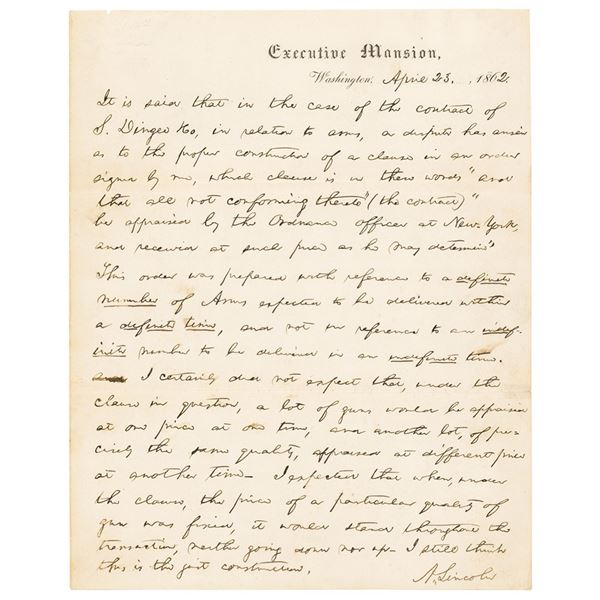 Executive Mansion,
Washington, April 23, 1862.
It is said that in the case of the contract of
S. Dingee & Co, in relation to arms, a dispute has arisen
as to the proper construction of a clause in an order
signed by me, which clause is in these words "and
that all not conforming thereto" (the contract) "
be appraised by the Ordnance officer at New-York,
and received at such price as he may determine"
This order was prepared with reference to a definite
number of Arms expected to be delivered within
a definite time, and not in reference to an indef-
inite number to be delivered in an indefinite time.
I certainly did not expect that, under the
clause in question, a lot of guns would be appraised
at one price at one time, and another lot, of pre-
cisely the same quality, appraised at different price
at another time — I expected that when, under
the clause, the price of a particular quality of
gun was fixed, it would stand throughout the
transaction, neither going down nor up — I still think
this is the just construction.
A. Lincoln